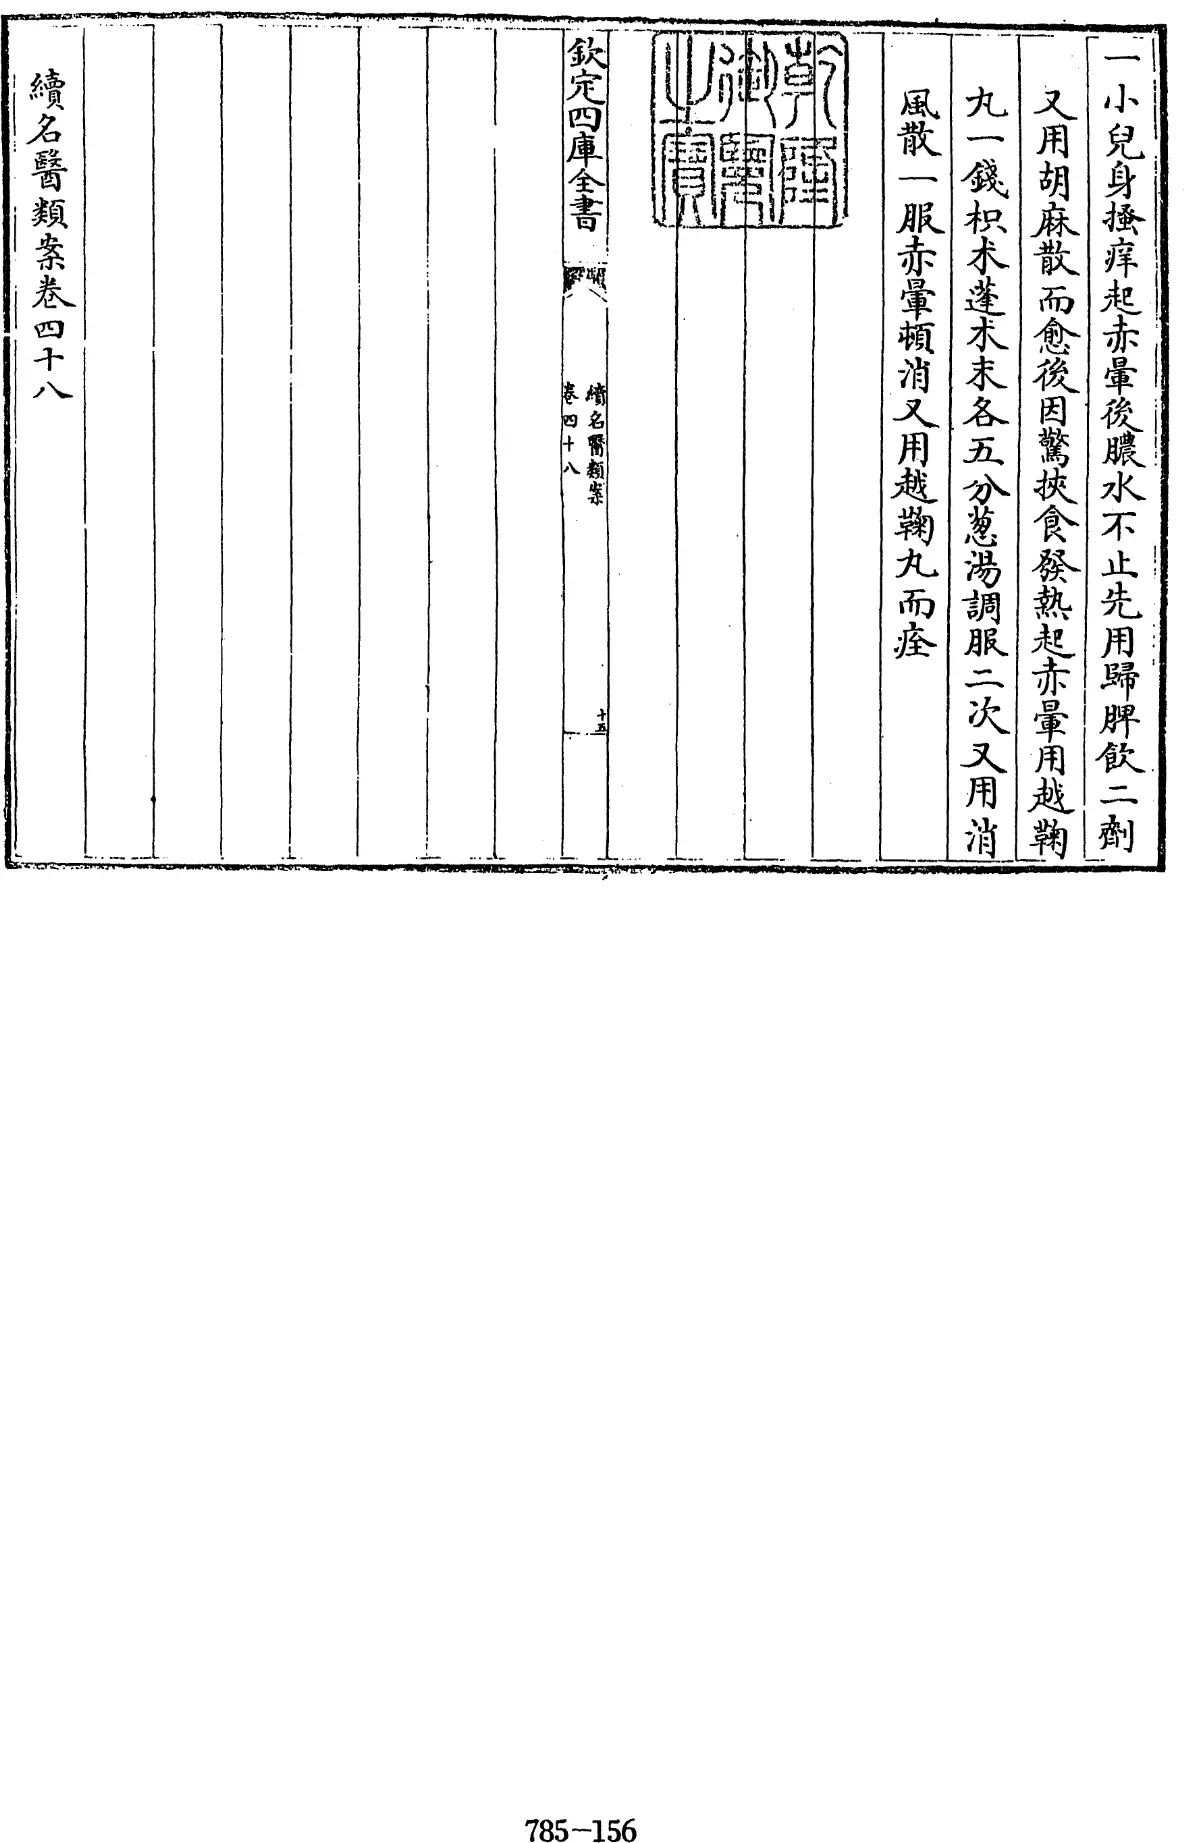 一小兒身搔痒起赤暈後膿水不止先用歸脾飲二劑
又用胡麻散而愈後因驚挾食發熱起赤暈用越鞠
丸一錢枳术蓬术末各五分葱湯調服二次又用消
風散一服赤暈頓消又用越鞠丸而痊
乾隆
御覽
之寳
欽定四庫全書
續名醫類案
卷四十八
十五
續名醫類案卷四十八
785-156